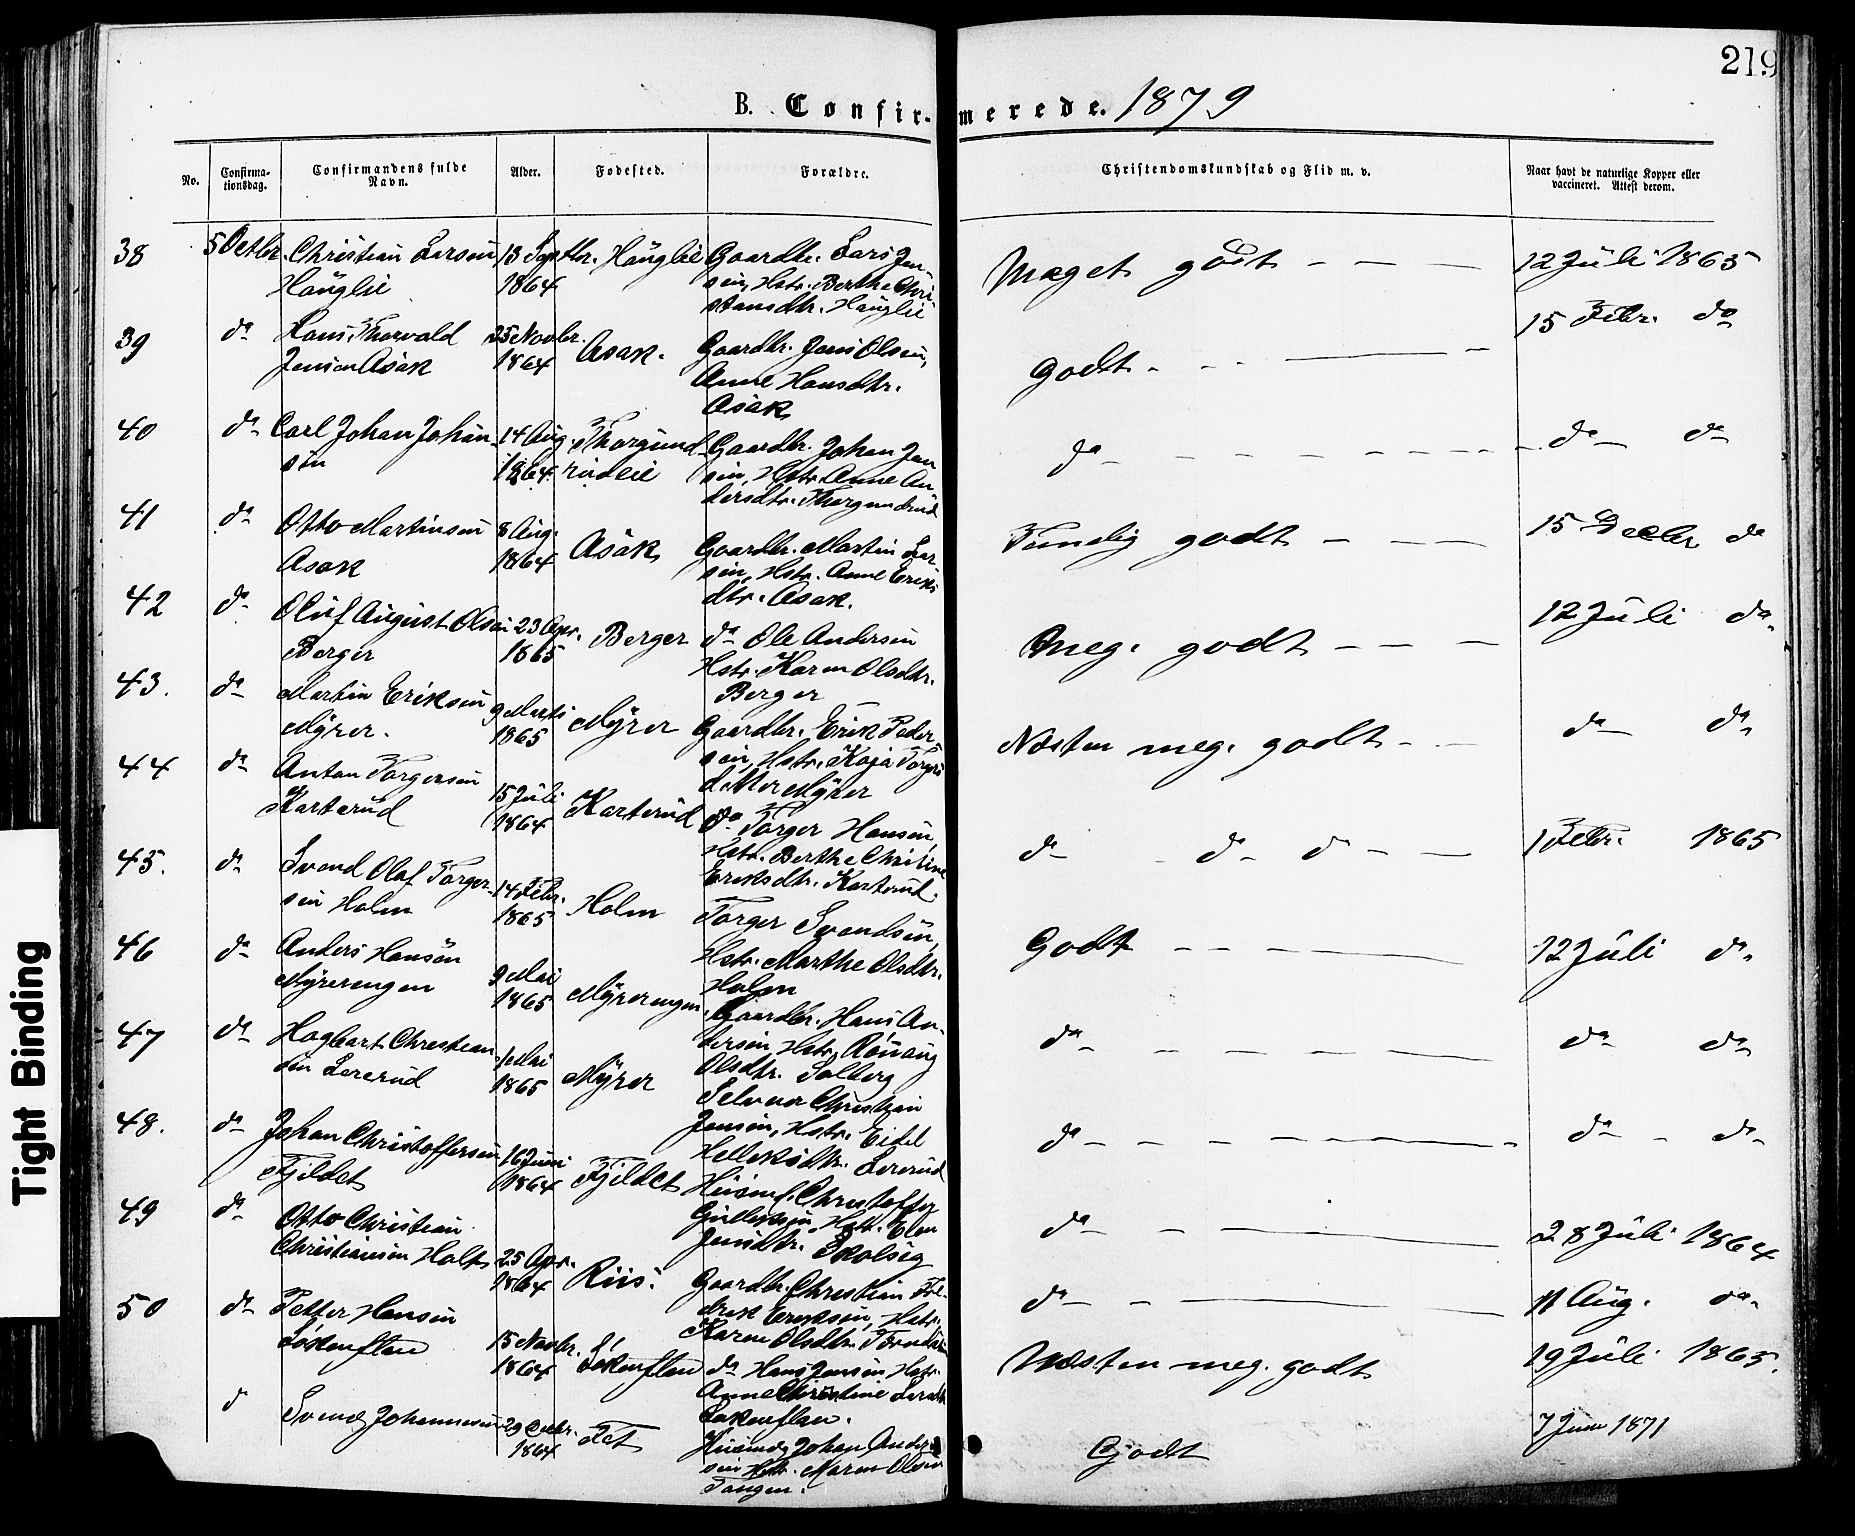 219
B. Confir- merede. 1879
No.
Confirma-
tionsdag.
Confirmandens fulde
Navn.
Alder.
Fødested.
Forældre.
Christendomskundskab og Flid m. v.
Naar havt de naturlige Kopper eller
vaccineret. Attest derom.
38 5 Octbr. Christian Larsen 13 Septbr. Hauglie Gaardbr. Lars Jen-
Hauglie 1864 sen, Hstr. Berthe Chri-
stiansdtr. Hauglie
Meget godt - - - 12 Juli 1865
39 do Hans Thorvald 25 Novbr. Asak. Gaardbr. Jens Olsen,
Jensen Asak 1864 Anne Hansdtr.
Asak
godt - - - 15 Febr. do
40 do Carl Johan Johan- 14 Aug. Thorgund- Gaardbr. Johan Jen
sen 1864 rudeie sen, Hstr. Anne An
dersdtr. Thorgundrud
do - - - do do
41 do Otto Martinsen 8 Aug. Asak Gaardbr. Martin Lar
Asak 1864 sen, Hstr. Anne Eriks
dtr. Asak.
Temlig godt - - - 15 Decbr do
42 do Oluf August Olsen 23 Apr. Berger do Ole Andersen
Berger 1865 Hstr. Karen Olsdtr.
Berger
Meg. godt - - - 12 Juli do
43. do Martin Eriksen 9 Marts Myrer Gaardbr. Erik Peder
Myrer. 1865 sen, Hstr. Kaja Torgers
datter Myrer
Næsten meg. godt - - do do
44 do Anton Torgersen 15 Juli Karterud do Torger Hansen,
Karterud 1864 Hstr. Berthe Christine
Eriksdtr. Karterud.
do - do do - - 1 Febr. 1865
45. do Svend Olaf Torger- 14 Febr. Holm Torger Svendsen,
sen Holm 1865 Hstr. Marthe Olsdtr.
Holm
Godt - - - 12 Juli do
46 do Anders Hansen 9 Mai Myrerengen Gaardbr. Hans An-
Myrerengen 1865 dersen Hstr. Rønaug
Olsdtr. Solberg
do - - - do do
47 do Hagbart Christian- 1 Mai Myrer Selveier Christian
sen Lererud 1865 Jensen, Hstr.
Lererud
do - - - do - do
48. do Johan Christoffersen 16 Juni Fjeldet Husmd. Christoffer
Fjeldet 1864 Gulleksen, Hstr. Elen
Jensdtr.
do - - - 28 Juli 1864
49 do Otto Christian 25 Apr. Riis. Gaardbr. Christian Fre-
Christiansen Holt 1864 drik Eriksen, Hstr.
Karen Olsdtr.
do - - 11 Aug. do
50 do Petter Hansen 15 Novbr. do Hans Jensen Hstr.
1864 Anne Christine
Næsten meg. godt 19 Juli 1865.
d Svend Johannesen 29 1864 Husmd. Johan Ander
sen Hstr. Maren Olsen
Tangen.
Godt 7 Juni 1871
Tight Binding